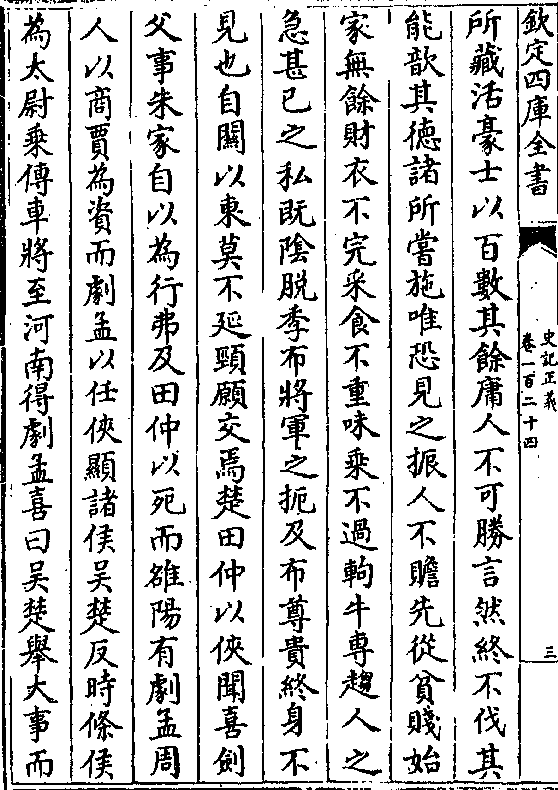 欽定四庫全書
史記正義
卷一百二十四
三
所藏活豪士以百數其餘庸人不可勝言然終不伐其
能歆其德諸所嘗施唯恐見之振人不贍先從貧賤始
家無餘財衣不完采食不重味乘不過軥牛専趨人之
急甚已之私既陰脱季布將軍之扼及布尊貴終身不
見也自闗以東莫不延頸願交焉楚田仲以俠聞喜劍
父事朱家自以為行弗及田仲以死而雒陽有劇孟周
人以商賈為資而劇孟以任俠顯諸侯吴楚反時條侯
為太尉乗傳車將至河南得劇孟喜曰吴楚舉大事而